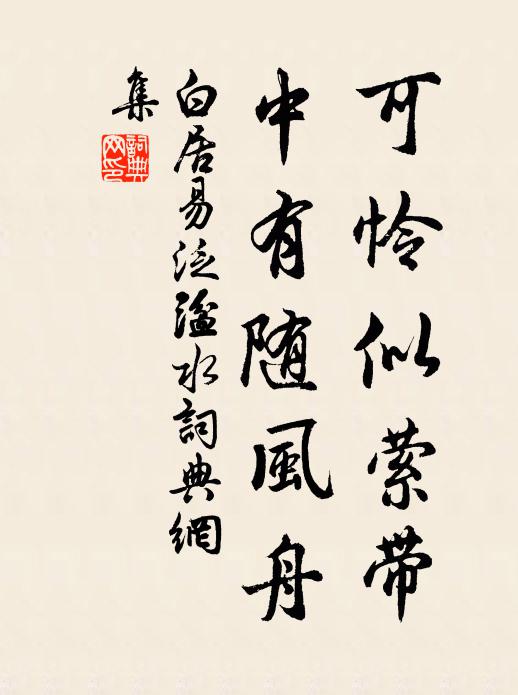 可怜似萦带
中有随風舟
白居易泛湓水詞典網
集
詞典网印